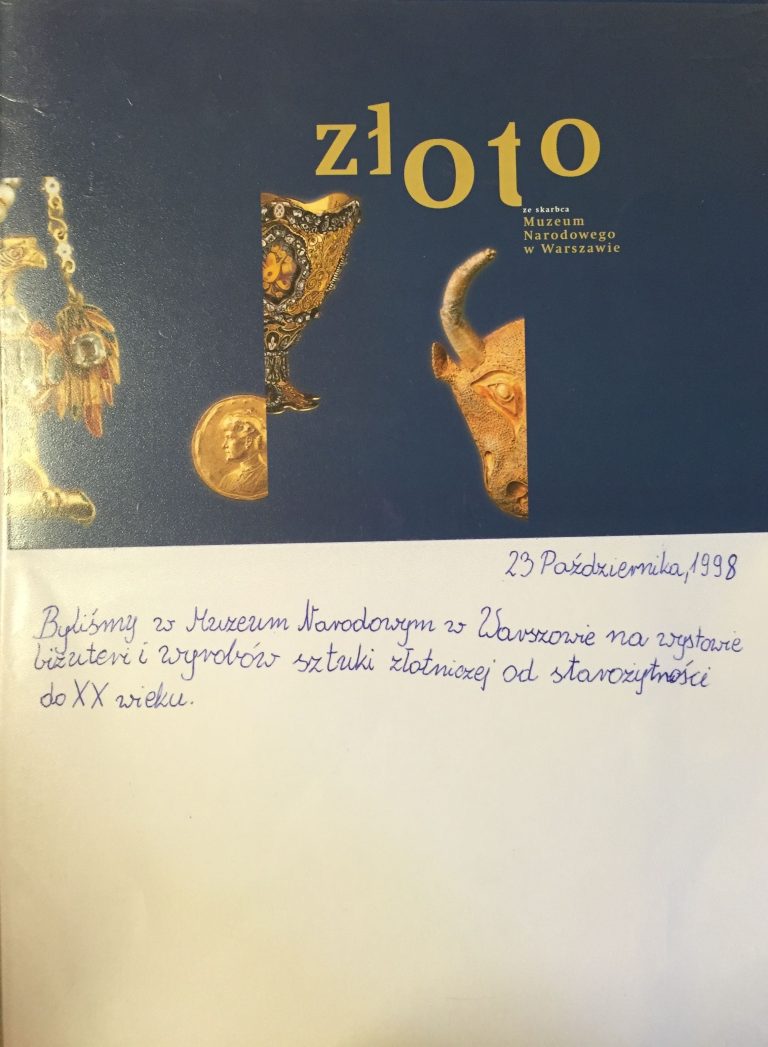 złoto
ze skarbca
Muzeum
Narodowego
w Warszawie
23 Października, 1998
Byliśmy w Muzeum Narodowym w Warszawie na wystawie
biżuterii i wyrobów sztuki złotniczej od starożytności
do XX wieku.